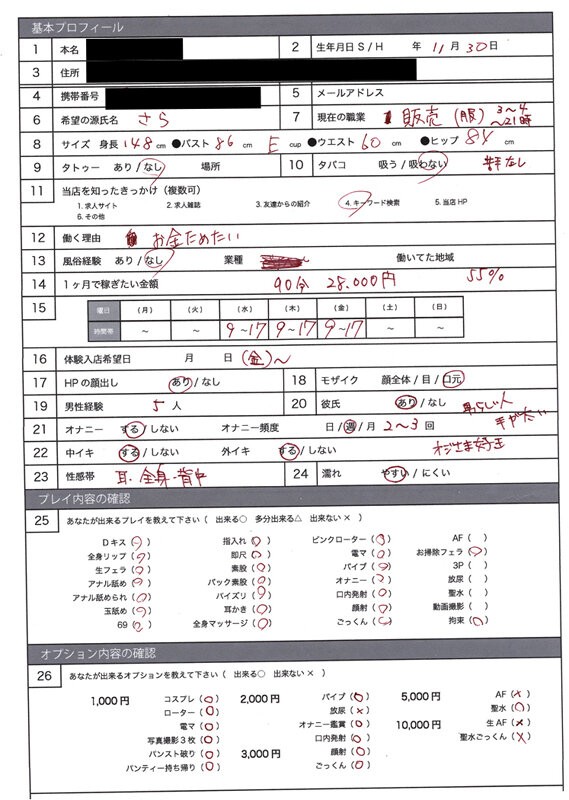 基本プロフィール
1 本名 2 生年月日 S / H 年 11 月 30 日
3 住所
4 携帯番号 5 メールアドレス
6 希望の源氏名 さら 7 現在の職業 販売 (服) 3〜4 〜21時
8 サイズ 身長 148 cm ●バスト 86 cm E cup ●ウエスト 60 cm ●ヒップ 84 cm
9 タトゥー あり / なし 場所 10 タバコ 吸う / 吸わない
11 当店を知ったきっかけ (複数可)
1. 求人サイト 2. 求人雑誌 3. 友達からの紹介 4. キーワード検索 5. 当店 HP
6. その他
12 働く理由 お金ためたい
13 風俗経験 あり / なし 業種 働いてた地域
14 1ヶ月で稼ぎたい金額 90分 28.000円 55%
15 曜日 (月) (火) (水) (木) (金) (土) (日)
時間帯 〜 〜 9〜17 9〜17 9〜17 〜 〜
16 体験入店希望日 月 日 (金)〜
17 HP の顔出し あり / なし 18 モザイク 顔全体 / 目 / 口元
19 男性経験 5 人 20 彼氏 あり / なし
21 オナニー する / しない オナニー頻度 日 / 週 / 月 2〜3 回
22 中イキ する / しない 外イキ する / しない
23 性感帯 耳・全身・背中 24 濡れ やすい / にくい
プレイ内容の確認
25 あなたが出来るプレイを教えて下さい ( 出来る○ 多分出来る△ 出来ない × )
Dキス (○) 指入れ (○) ピンクローター (○) AF ( )
全身リップ (○) 即尺 (○) 電マ (○) お掃除フェラ (○)
生フェラ (○) 素股 (○) バイブ (○) 3P ( )
アナル舐め (○) バック素股 (○) オナニー (○) 放尿 ( )
アナル舐められ (○) パイズリ (○) 口内発射 (○) 聖水 ( )
玉舐め (○) 耳かき (○) 顔射 (○) 動画撮影 ( )
69 (○) 全身マッサージ (○) ごっくん (○) 拘束 (○)
オプション内容の確認
26 あなたが出来るオプションを教えて下さい ( 出来る○ 出来ない × )
1,000円 コスプレ (○) 2,000円 バイブ (○) 5,000円 AF (×)
ローター (○) 放尿 (×) 聖水 (○)
電マ (○) オナニー鑑賞 (○) 10,000円 生AF (×)
写真撮影3枚 (○) 口内発射 (○) 聖水ごっくん (×)
パンスト破り (○) 3,000円 顔射 (○)
パンティー持ち帰り (○) ごっくん (○)